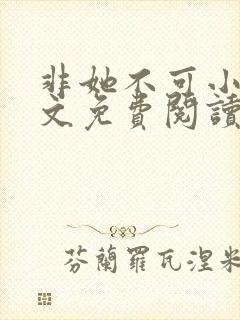 非她不可小
文免費閱讀
芬蘭羅瓦涅米